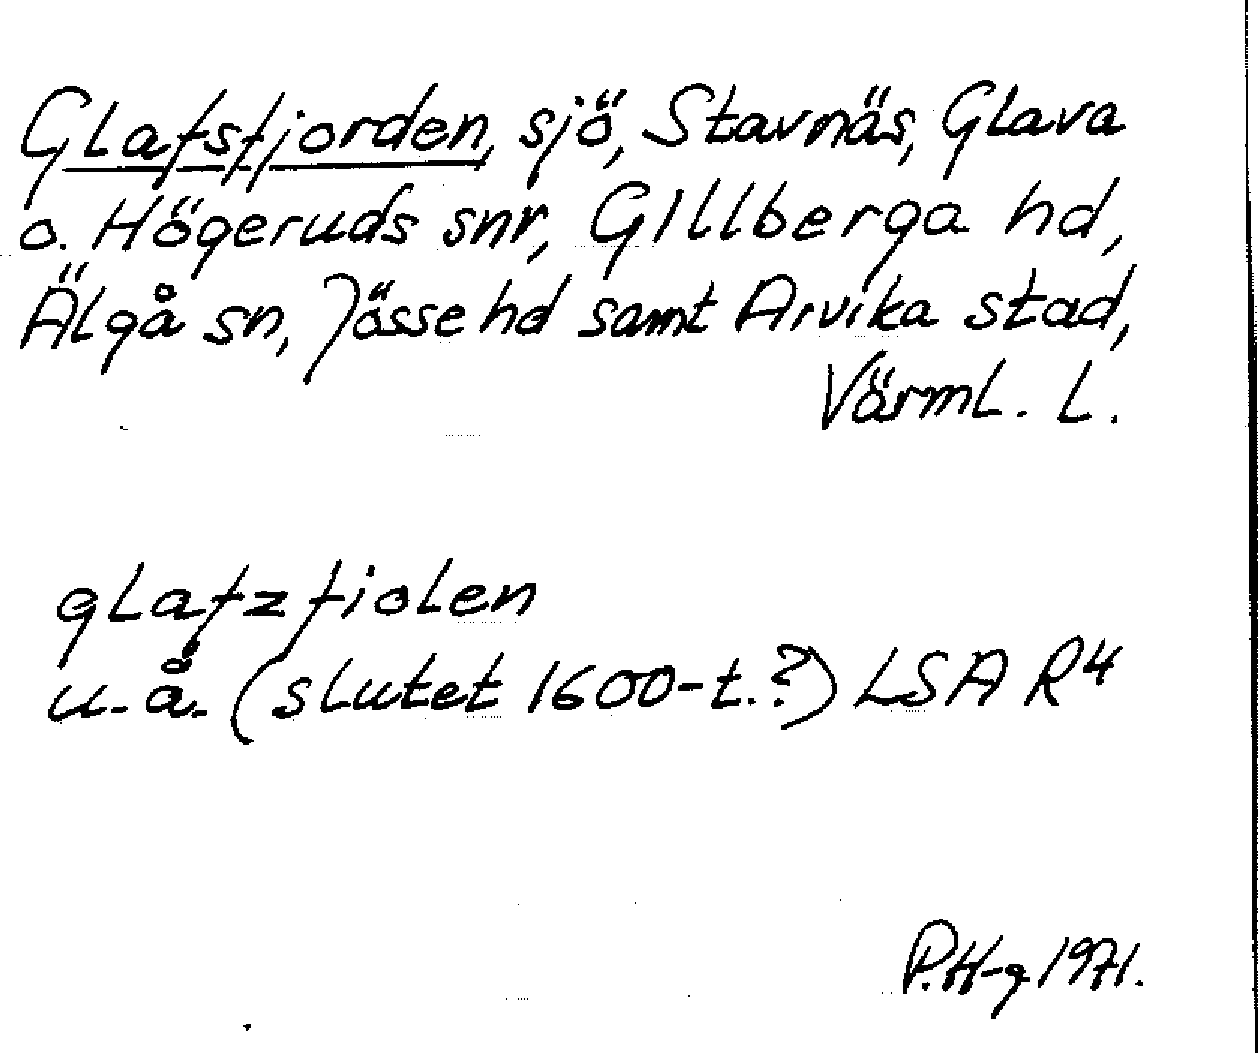 Glafsfjorden, sjö, Stavnäs, Glava
o. Högeruds snr, Gillberga hd,
Älgå sn, Jösse hd samt Arvika stad,
Värml. l.
glafzfiolen
u.å. (slutet 1600-t.?) LSA R4
P.H-g. 1971.